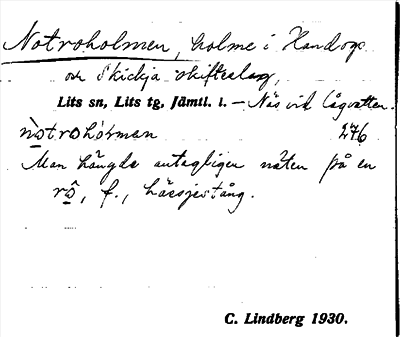 Notroholmen, holme i Handogs
och Skickja skifteslag,
Lits sn, Lits tg, Jämtl. l. – Näs vid lågvatten.
nò̱trohɷ́rmen 276
Man hängde antagligen näten på en
rô̱, f., hässjestång.
C. Lindberg 1930.